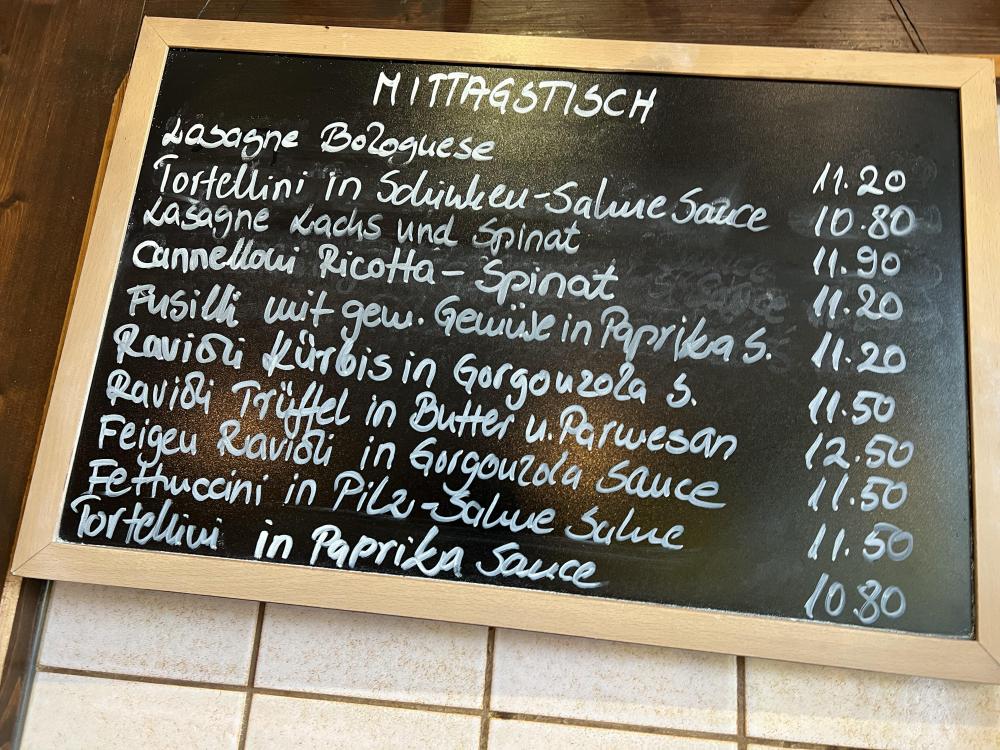 MITTAGSTISCH
Lasagne Bolognese 11.20
Tortellini in Schinken-Sahne Sauce 10.80
Lasagne Lachs und Spinat 11.90
Cannelloni Ricotta - Spinat 11.20
Fusilli mit gem. Gemüse in Paprika S. 11.20
Ravioli Kürbis in Gorgonzola S. 11.50
Ravioli Trüffel in Butter u. Parmesan 12.50
Feigen Ravioli in Gorgonzola Sauce 11.50
Fettuccini in Pilz-Sahne Sahne 11.50
Tortellini in Paprika Sauce 10.80